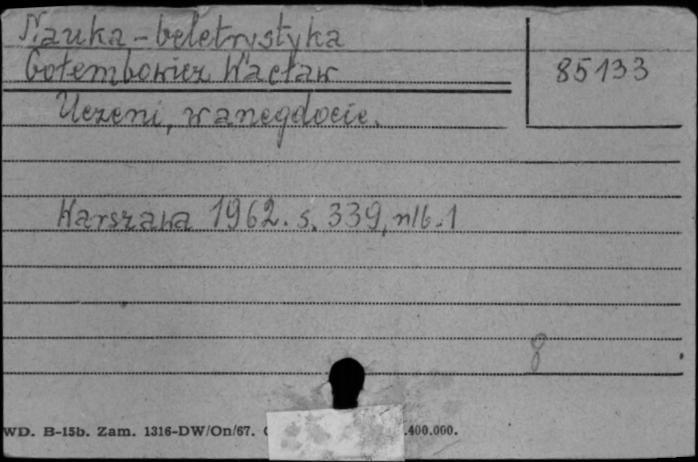 Nauka-beletrystyka
Gołembowicz Wacław
85133
Uczeni, w anegdocie.
Warszawa 1962. s. 339, nlb. 1
8
WD. B-15b. Zam. 1316-DW/On/67.
.400.000.